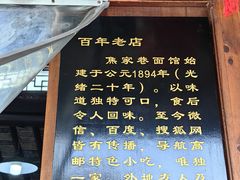 百年老店
焦家巷面馆始
建于公元1894年（光
绪二十年）。以味
道独特可口，食后
令人回味。至今微
信、百度、搜狐网
皆有传播，导航高
邮特色小吃，唯独
一家，外地